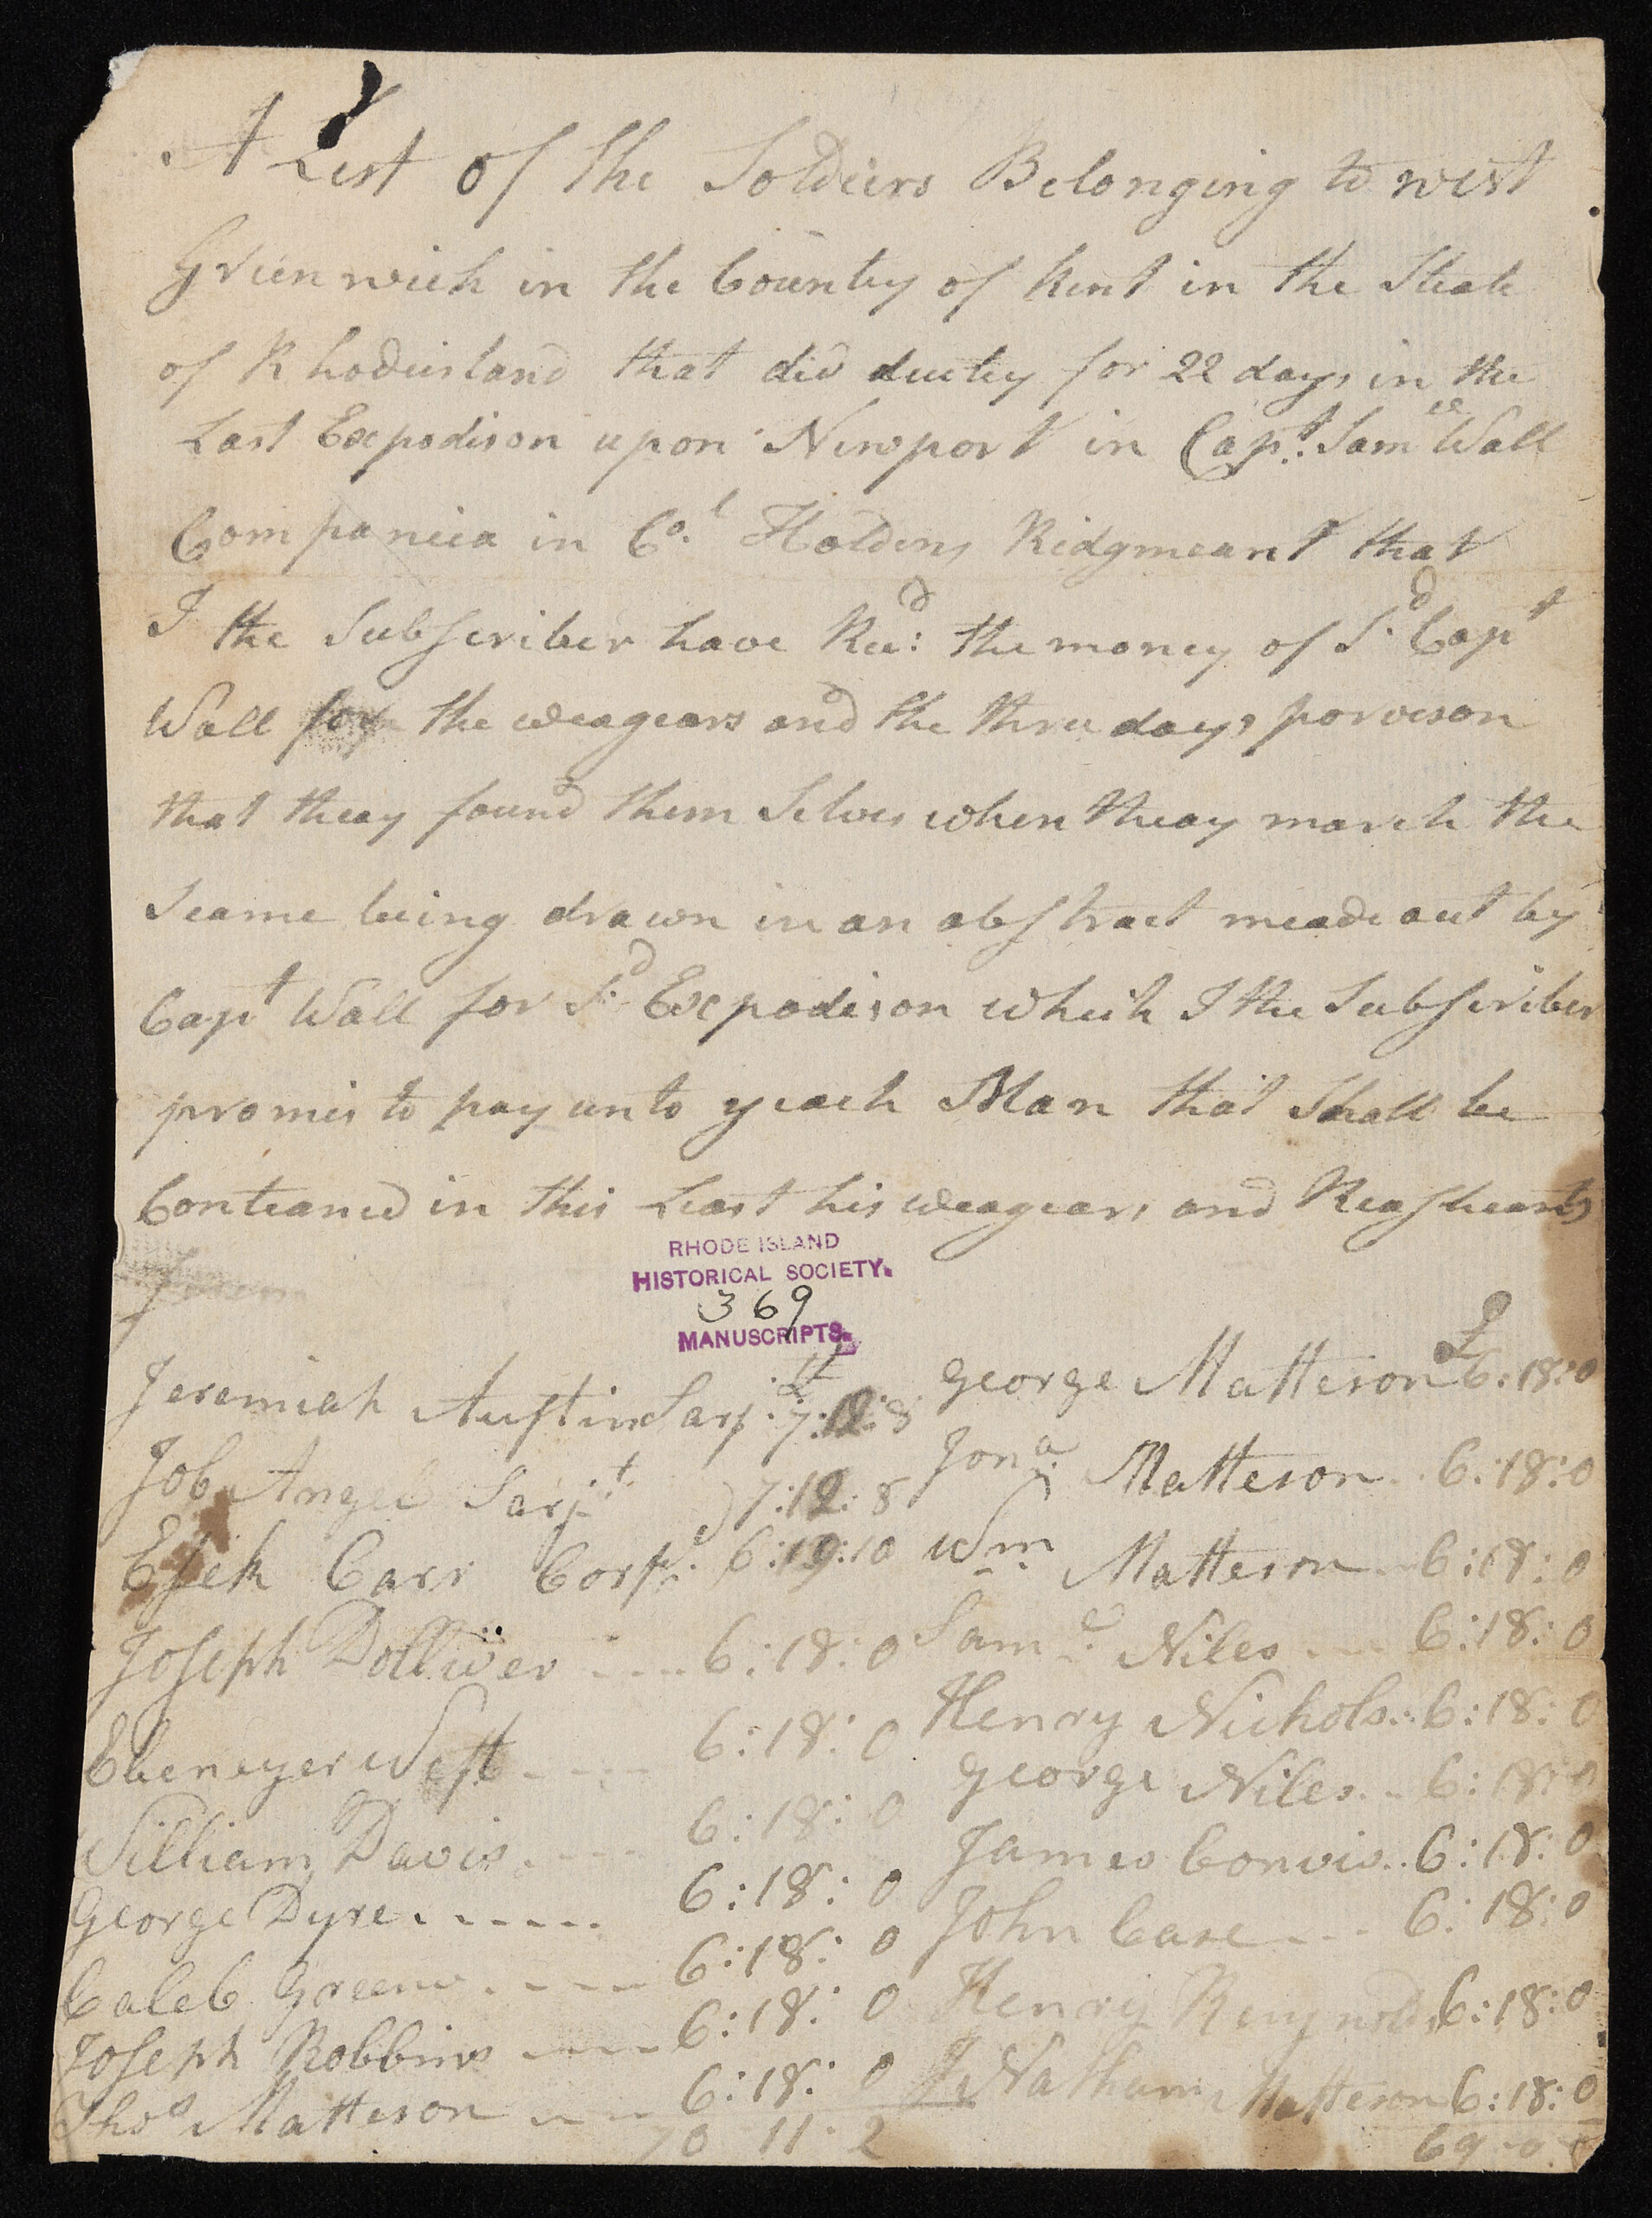 A List of the Soldiers Belonging to west
Greenwich in the County of Kent in the Steate
of Rhodeisland that did deutey for 22 days in the
Last Expodison upon Newport in Capt. Samll Wall
Companiea in Col. Holdens Ridgmeant that
I the Subscriber have Recd: the money of Sd. Capt
Wall for the weagears and the three days porveson
that theay found them Selves when theay march the
Seame being drawn in an abstract meade out by
Capt Wall for Sd. Expodison which I the Subscriber
promis to pay unto yeach Man that Shall be
Conteaned in this Least his weagears and Reashearts
RHODE ISLAND
HISTORICAL SOCIETY.
369
MANUSCRIPTS.
Jeremiah Austin Sarj. 7:12:8
Job Angel Sarjt. 7:12:8
Esek Carr Corpl. 6:19:10
Joseph Dolliver 6:18:0
Ebenezer West 6:18:0
William Davis 6:18:0
George Dyre 6:18:0
Caleb Greene 6:18:0
Joseph Robbins 6:18:0
Thos Matteson 6:18:0
70 11 2
£
George Matteson 6:18:0
Jona. Matteson 6:18:0
Wm. Matteson 6:18:0
Saml. Niles 6:18:0
Henry Nichols 6:18:0
George Niles 6:18:0
James Convis 6:18:0
John Case 6:18:0
Henry Reynolds 6:18:0
Nathan Matteson 6:18:0
69 0 0